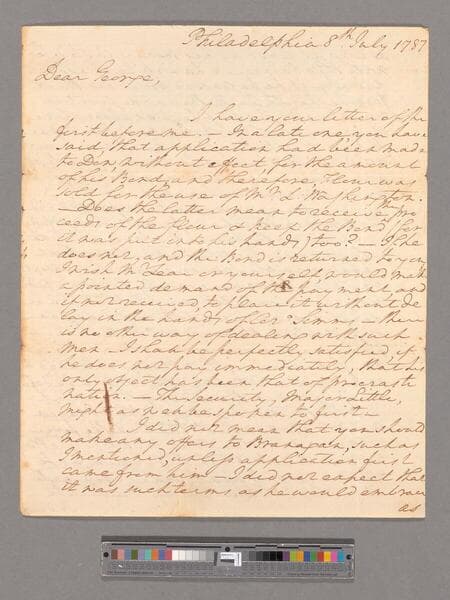 Philadelphia 8th July 1787
Dear George,
I have your letter of the
first before me. — In a late one, you have
said, that application had been made
to Dow without effect for the amount
of his Bond, and therefore, Flour was
sold for the use of Mr. L. Washington.
— Does the latter mean to receive the pro
ceeds of the flour & keep the Bond (for
it was put into his hands) too? — If he
does not, and the Bond is returned to you,
I wish Mr. Lear or yourself would make
a pointed demand of the payment and
if not received to place it without de
lay in the hands of Coll. Simms — there
is no other way of dealing with such
men — I shall be perfectly satisfied, if
he does not pay immediately, that his
only object has been that of procrasti
nation. — The security, Major Little,
might as well be spoken to first —
I did not mean that you should
make any offers to Branagan, such as
I mentioned, unless application first
came from him — I did not expect that
it was such terms as he would embrace
as